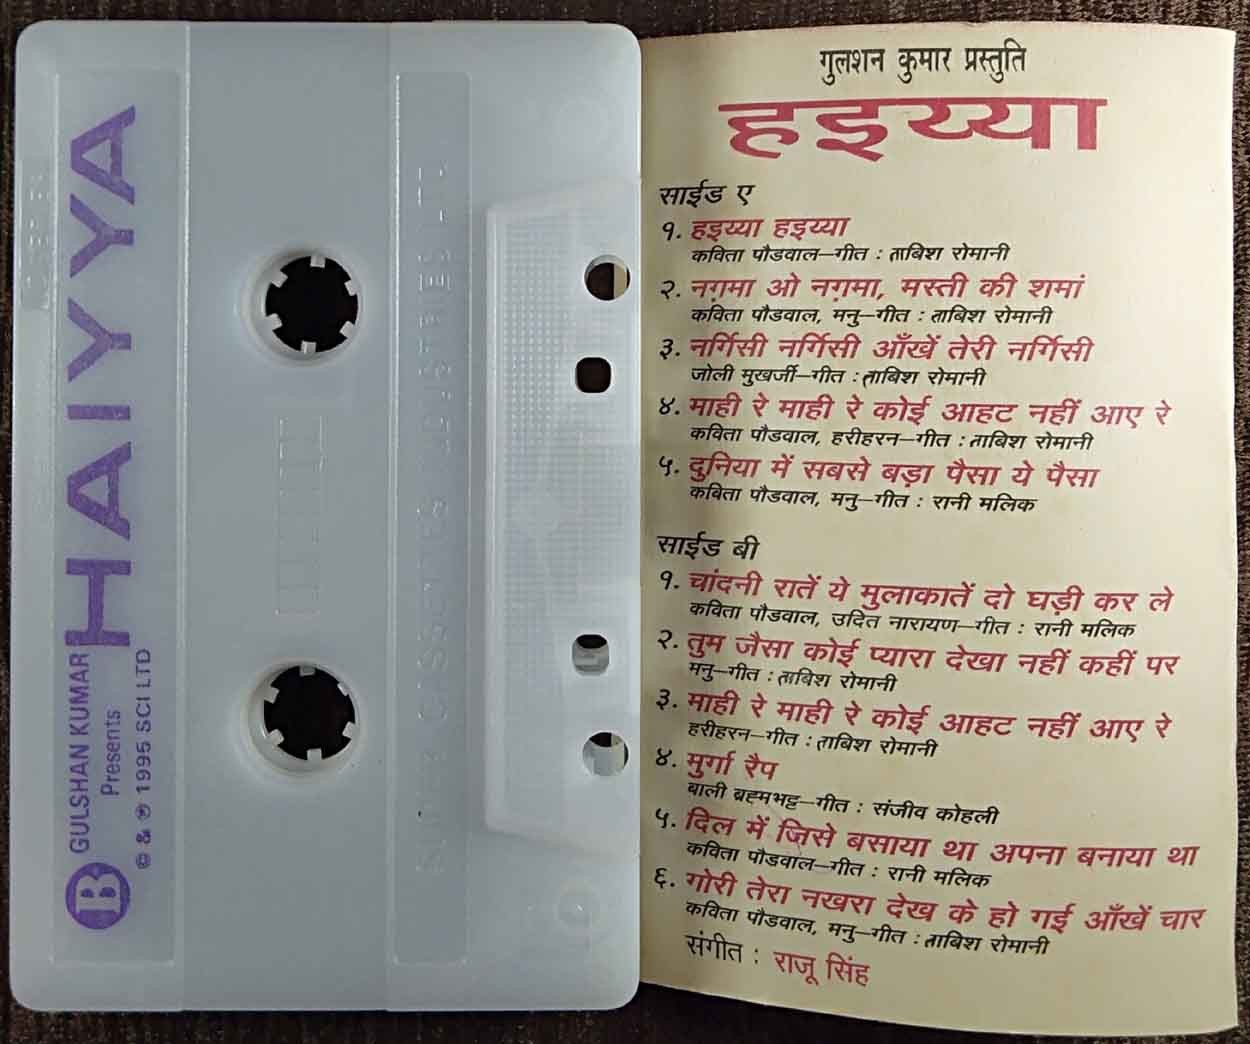 HAIYYA
GULSHAN KUMAR
Presents
© & ℗ 1995 SCI LTD
B
SUPER CASSETTES INDUSTRIES LTD.
गुलशन कुमार प्रस्तुति
हइय्या
साईड ए
१. हइय्या हइय्या
कविता पौडवाल–गीत : ताबिश रोमानी
२. नग़मा ओ नग़मा, मस्ती की शमां
कविता पौडवाल, मनु–गीत : ताबिश रोमानी
३. नर्गिसी नर्गिसी आँखें तेरी नर्गिसी
जोली मुखर्जी–गीत : ताबिश रोमानी
४. माही रे माही रे कोई आहट नहीं आए रे
कविता पौडवाल, हरीहरन–गीत : ताबिश रोमानी
५. दुनिया में सबसे बड़ा पैसा ये पैसा
कविता पौडवाल, मनु–गीत : रानी मलिक
साईड बी
१. चांदनी रातें ये मुलाकातें दो घड़ी कर ले
कविता पौडवाल, उदित नारायण–गीत : रानी मलिक
२. तुम जैसा कोई प्यारा देखा नहीं कहीं पर
मनु–गीत : ताबिश रोमानी
३. माही रे माही रे कोई आहट नहीं आए रे
हरीहरन–गीत : ताबिश रोमानी
४. मुर्गा रैप
बाली ब्रह्मभट्ट–गीत : संजीव कोहली
५. दिल में जिसे बसाया था अपना बनाया था
कविता पौडवाल–गीत : रानी मलिक
६. गोरी तेरा नखरा देख के हो गई आँखें चार
कविता पौडवाल, मनु–गीत : ताबिश रोमानी
संगीत : राजू सिंह